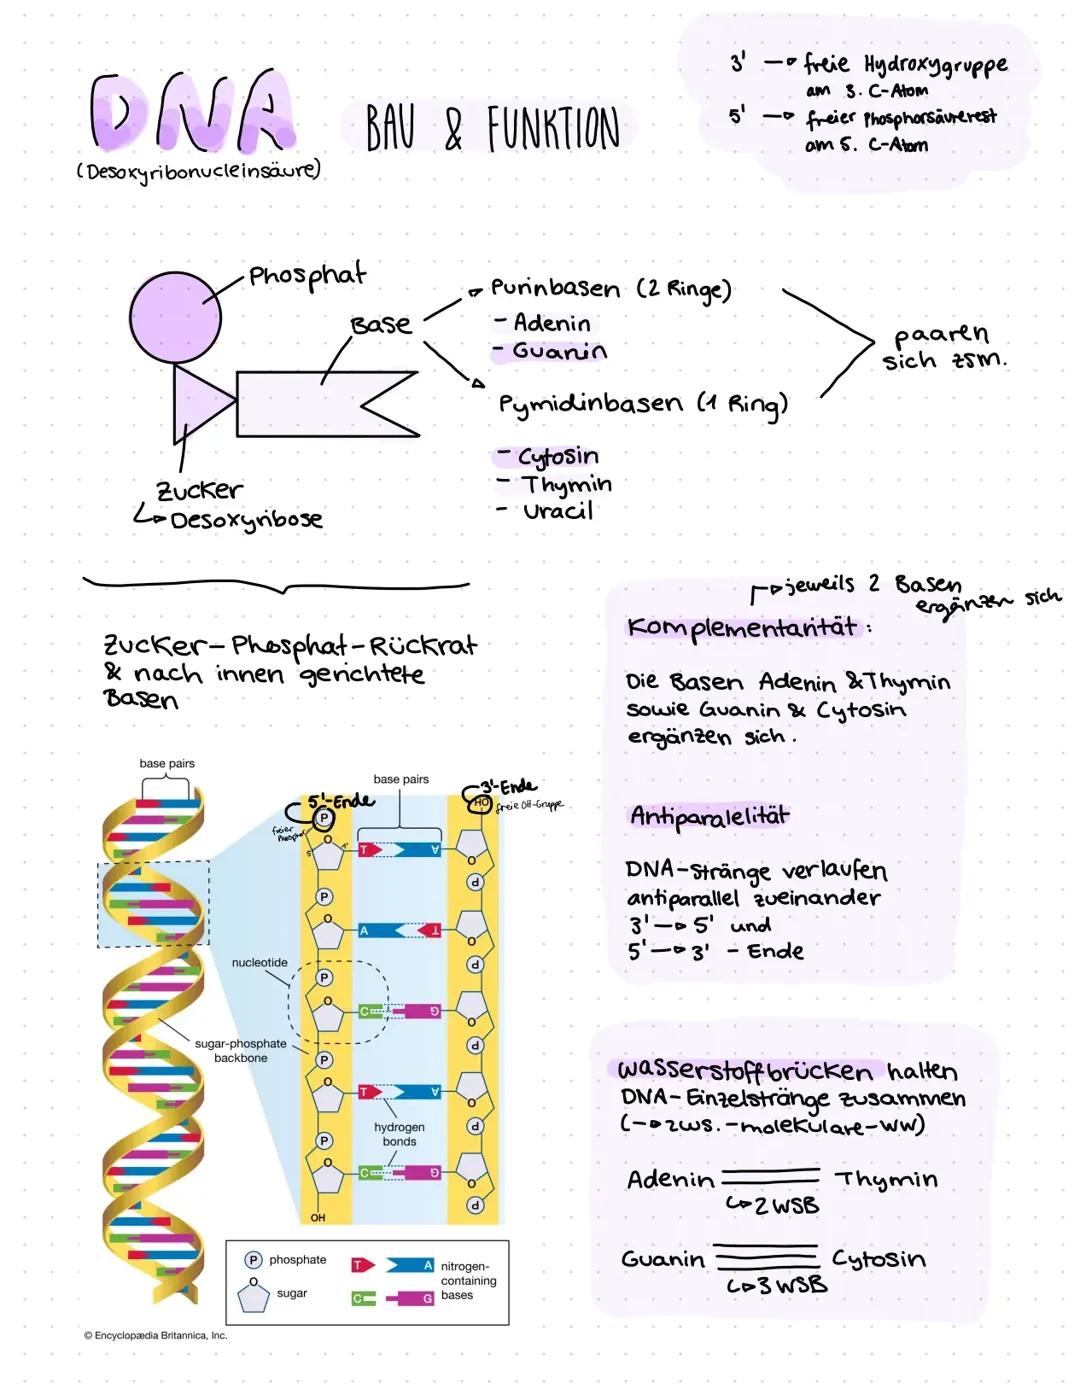 DNA
(Desoxyribonucleinsäure)
BAU & FUNKTION
3' → freie Hydroxygruppe
am 3. C-Atom
5' → freier Phosphorsäurerest
am 5. C-Atom
Phosphat
Base
Zucker
↳ Desoxyribose
Purinbasen (2 Ringe)
- Adenin
- Guanin
Pymidinbasen (1 Ring)
- Cytosin
- Thymin
- Uracil
paaren
sich zsm.
Zucker-Phosphat-Rückrat
& nach innen gerichtete
Basen
jeweils 2 Basen
ergänzen sich
Komplementarität:
Die Basen Adenin & Thymin
sowie Guanin & Cytosin
ergänzen sich.
Antiparalelität
DNA-Stränge verlaufen
antiparallel zueinander
3' → 5' und
5' → 3' - Ende
base pairs
base pairs
5'-Ende
freier
Phosphat
3'-Ende
freie OH-Gruppe
HO
P
O
5'
1'
T
A
O
P
P
O
A
T
O
P
nucleotide
P
O
C
G
O
P
sugar-phosphate
backbone
P
O
T
A
O
P
hydrogen
bonds
P
O
C
G
O
P
OH
P phosphate
O
sugar
T A
C G
nitrogen-
containing
bases
© Encyclopædia Britannica, Inc.
Wasserstoffbrücken halten
DNA-Einzelstränge zusammen
(→ zws.-molekulare-WW)
Adenin Thymin
↳ 2 WSB
Guanin Cytosin
↳ 3 WSB